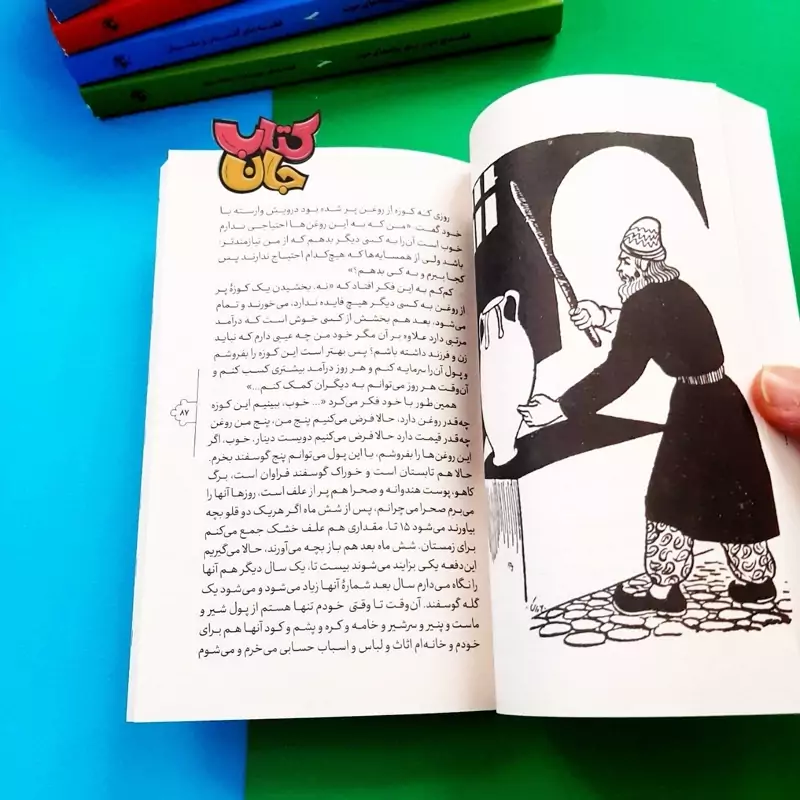 کتاب
جان
روزی که کوزه از روغن پر شده بود درویش وارسته با
خود گفت: «من که به این روغن‌ها احتیاجی ندارم
خوب است آن را به کسی دیگر بدهم که از من نیازمندتر
باشد ولی از همسایه‌ها که هیچ‌کدام احتیاج ندارند پس
کجا ببرم و به کی بدهم؟»
کم‌کم به این فکر افتاد که «نه. بخشیدن یک کوزهٔ پر
از روغن به کسی دیگر هیچ فایده ندارد، می‌خورند و تمام
می‌شود، بعد هم بخشش از کسی خوش است که درآمد
مرتبی دارد علاوه بر آن مگر خود من چه عیبی دارم که نباید
زن و فرزند داشته باشم؟ پس بهتر است این کوزه را بفروشم
و پول آن را سرمایه کنم و هر روز درآمد بیشتری کسب کنم و
آن‌وقت هر روز می‌توانم به دیگران کمک کنم...»
همین‌طور با خود فکر می‌کرد «... خوب، ببینیم این کوزه
چه‌قدر روغن دارد، حالا فرض می‌کنیم پنج من، پنج من روغن
چه‌قدر قیمت دارد حالا فرض می‌کنیم دویست دینار، خوب، اگر
این روغن‌ها را بفروشم، با این پول می‌توانم پنج گوسفند بخرم.
حالا هم تابستان است و خوراک گوسفند فراوان است، برگ
کاهو، پوست هندوانه و صحرا هم پر از علف است، روزها آنها را
می‌برم صحرا می‌چرانم، پس از شش ماه اگر هریک دو قلو بچه
بیاورند می‌شود ۱۵ تا. مقداری هم علف خشک جمع می‌کنم
برای زمستان. شش ماه بعد هم باز بچه می‌آورند، حالا می‌گیریم
این‌دفعه یکی بزایند می‌شوند بیست تا، یک سال دیگر هم آنها
را نگاه می‌دارم سال بعد شمارهٔ آنها زیاد می‌شود و می‌شود یک
گله گوسفند. آن‌وقت تا وقتی خودم تنها هستم از پول شیر و
ماست و پنیر و سرشیر و خامه و کره و پشم و کود آنها هم برای
خودم و خانه‌ام اثاث و لباس و اسباب حسابی می‌خرم و می‌شوم
۸۷